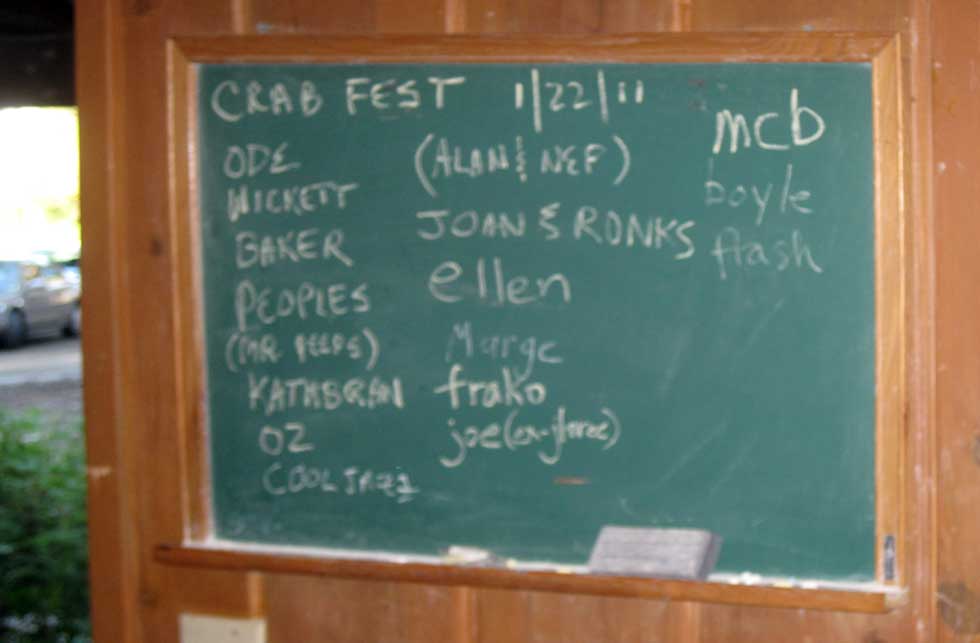 CRAB FEST 1/22/11
ODE
WICKETT
BAKER
PEOPLES
(MR PEEPS)
OZ
COOL JAZZ
(ALAN & NEF)
JOAN & RONKS
ellen
Marge
frako
joe
mcb
boyle
flash